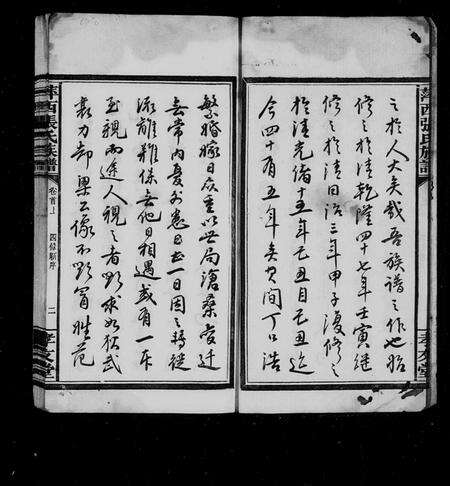 之於人大矣哉吾族譜之作也始
修之於清乾隆四十七年壬寅繼
修之於清同治三年甲子復修之
於清光緒十五年己丑自己丑迄
今四十有五年矣其間丁口浩
繁婚嫁日眾重以世局滄桑播遷
無常內憂外患日甚一日因之轉徙
流離難保無他日相遇或有一本
至親而途人視之者點
裘力却果公像不
萍西張氏族譜
卷首上
四修新序
二
孝友堂
萍西張氏族譜
孝友堂